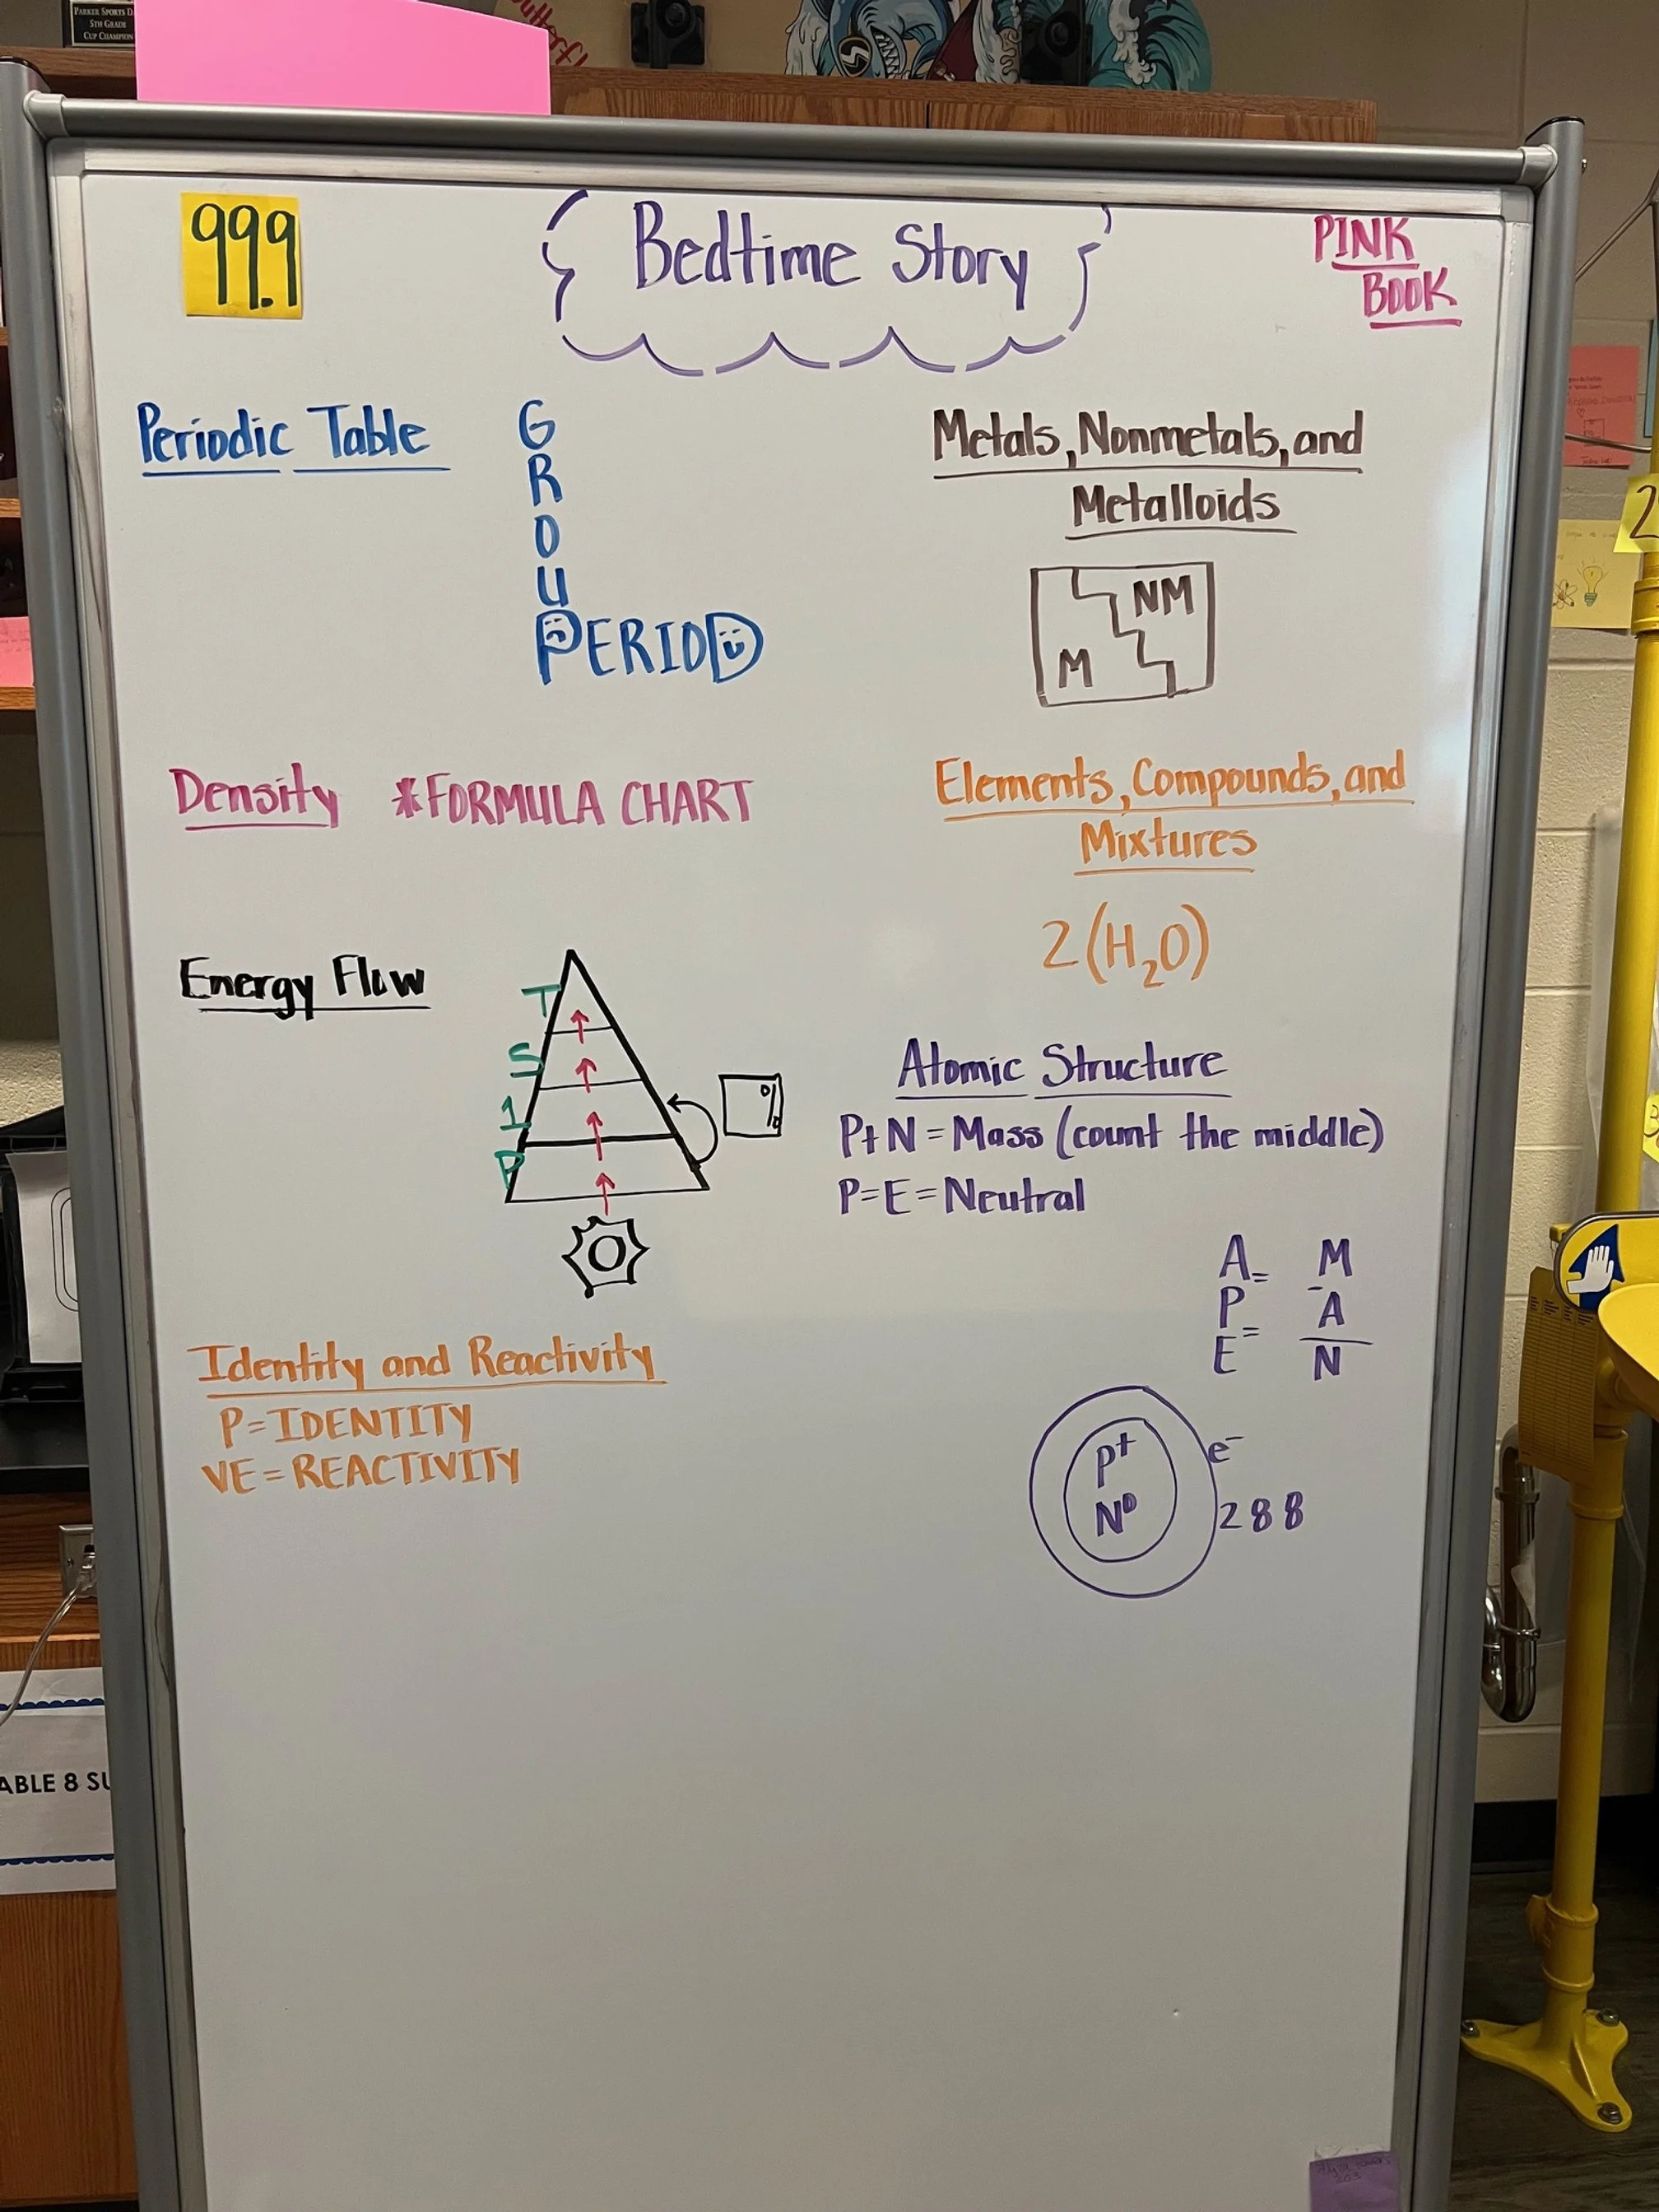 PARKER SPORTS D
5TH GRADE
CUP CHAMPION
99.9
Bedtime Story
PINK
BOOK
Periodic Table
G
R
O
U
PERIOD
Metals, Nonmetals, and
Metalloids
NM
M
Density *FORMULA CHART
Elements, Compounds, and
Mixtures
2(H₂O)
Energy Flow
T
S
1
P
%
Atomic Structure
P+N=Mass (count the middle)
P=E=Neutral
A= M
P= -A
E N
P+
N0
e-
288
Identity and Reactivity
P=IDENTITY
VE=REACTIVITY
ABLE 8 SU
2